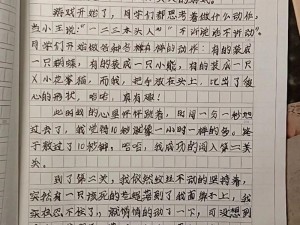 游戏开始了，同学们都思考着做什么动作。
当小王说："一二三木头人""不许说话不许动"。
同学们开始做各种各样奇怪的动作：有的装成
一只蝴蝶，有的装成一只小熊，有的装成一只
大小老鼠。而我，把手放在头上，比出了爱
心的形状，哈哈，真有趣！
此时我的心里怦怦跳着，时间一分一秒地
过去了，我觉得10秒就像一小时一样的多。终
于熬过了10秒钟，哈哈，我成功的闯入第二关
关。
到了第二关，我依然纹丝不动的坚持着，
突然有一只该死的老蚊落到了我面前上，我
实在忍不住了，就悄悄的动了一下，可没想到